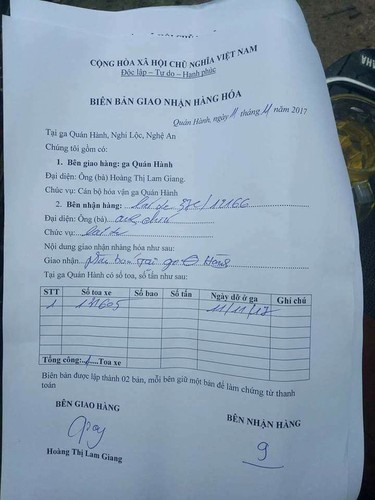 CỘNG HÒA XÃ HỘI CHỦ NGHĨA VIỆT NAM
Độc lập – Tự do – Hạnh phúc
BIÊN BẢN GIAO NHẬN HÀNG HÓA
Quán Hành, ngày 11 tháng 11 năm 2017
Tại ga Quán Hành, Nghi Lộc, Nghệ An
Chúng tôi gồm có:
1. Bên giao hàng: ga Quán Hành
Đại diện: Ông (bà) Hoàng Thị Lam Giang.
Chức vụ: Cán bộ hóa vận ga Quán Hành
2. Bên nhận hàng: lái xe 37C/17166
Đại diện: Ông (bà)
Chức vụ: lái xe
Nội dung giao nhận nhàng hóa như sau:
Giao nhận
Tại ga Quán Hành có số toa, số tấn như sau:
STT Số toa xe Số bao Số tấn Ngày dỡ ở ga Ghi chú
1 131605 11/11/17
Tổng cộng: 1 Toa xe
Biên bản được lập thành 02 bản, mỗi bên giữ một bản để làm chứng từ thanh
toán
BÊN GIAO HÀNG BÊN NHẬN HÀNG
Hoàng Thị Lam Giang